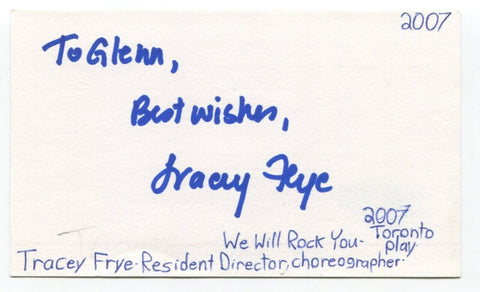 2007
To Glenn,
Best wishes,
Tracey Frye
2007
We Will Rock You- Toronto play
Tracey Frye-Resident Director, choreographer-